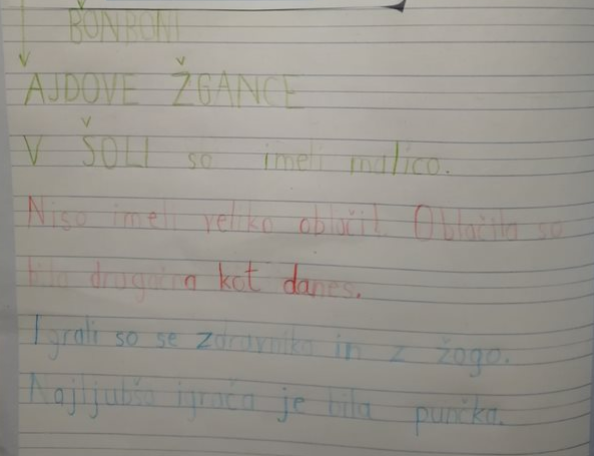 BONBONI
AJDOVE ŽGANCE
V ŠOLI so imeli malico.
Niso imeli veliko oblačil. Oblačila so
bila drugačna kot danes.
Igrali so se zdravnika in z žogo.
Najljubša igrača je bila punčka.